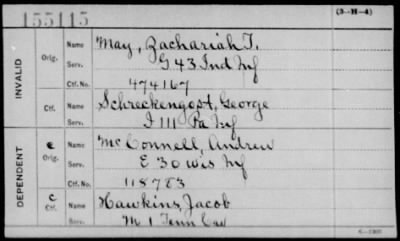 155115
(3-H-4)
INVALID
Orig. Name May, Zachariah T.
Serv. G 43 Ind Inf
Ctf. No. 474167
Ctf. Name Schreckengost, George
Serv. I 111 Pa Inf
DEPENDENT
C Orig. Name McConnell, Andrew
Serv. E 30 Wis Inf
Ctf. No. 118783
C Ctf. Name Hawkins, Jacob
Serv. M 1 Tenn Cav